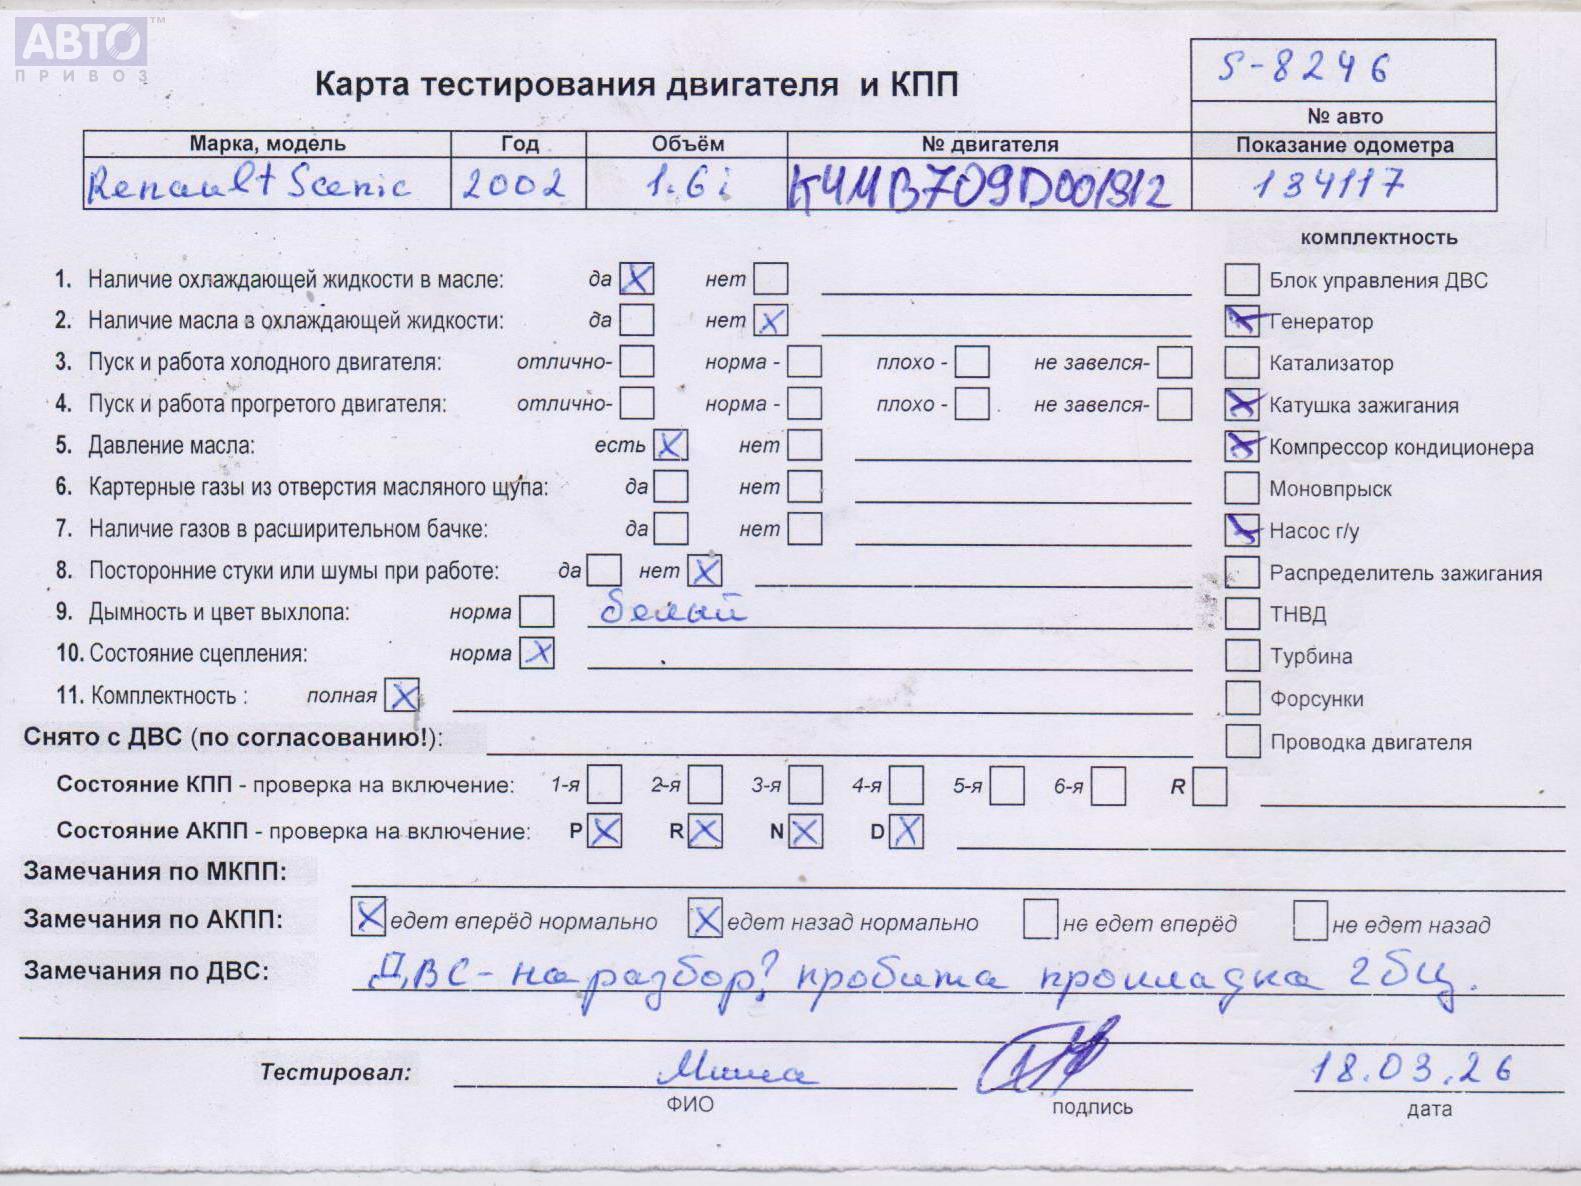 АВТО™
ПРИВОЗ
Карта тестирования двигателя и КПП
S-8246
№ авто
Марка, модель Год Объём № двигателя Показание одометра
Renault Scenic 2002 1.6i K4MB709D001912 134117
комплектность
1. Наличие охлаждающей жидкости в масле: да X нет
Блок управления ДВС
2. Наличие масла в охлаждающей жидкости: да нет X
X Генератор
3. Пуск и работа холодного двигателя: отлично- норма - плохо - не завелся-
Катализатор
4. Пуск и работа прогретого двигателя: отлично- норма - плохо - не завелся-
X Катушка зажигания
5. Давление масла: есть X нет
X Компрессор кондиционера
6. Картерные газы из отверстия масляного щупа: да нет
Моновпрыск
7. Наличие газов в расширительном бачке: да нет
X Насос г/у
8. Посторонние стуки или шумы при работе: да нет X
Распределитель зажигания
9. Дымность и цвет выхлопа: норма белый
ТНВД
10. Состояние сцепления: норма X
Турбина
11. Комплектность : полная X
Форсунки
Снято с ДВС (по согласованию!):
Проводка двигателя
Состояние КПП - проверка на включение: 1-я 2-я 3-я 4-я 5-я 6-я R
Состояние АКПП - проверка на включение: P X R X N X D X
Замечания по МКПП:
Замечания по АКПП: X едет вперёд нормально X едет назад нормально не едет вперёд не едет назад
Замечания по ДВС: ДВС - на разбор? пробита прокладка гбц.
Тестировал: Миша 18.03.26
ФИО подпись дата